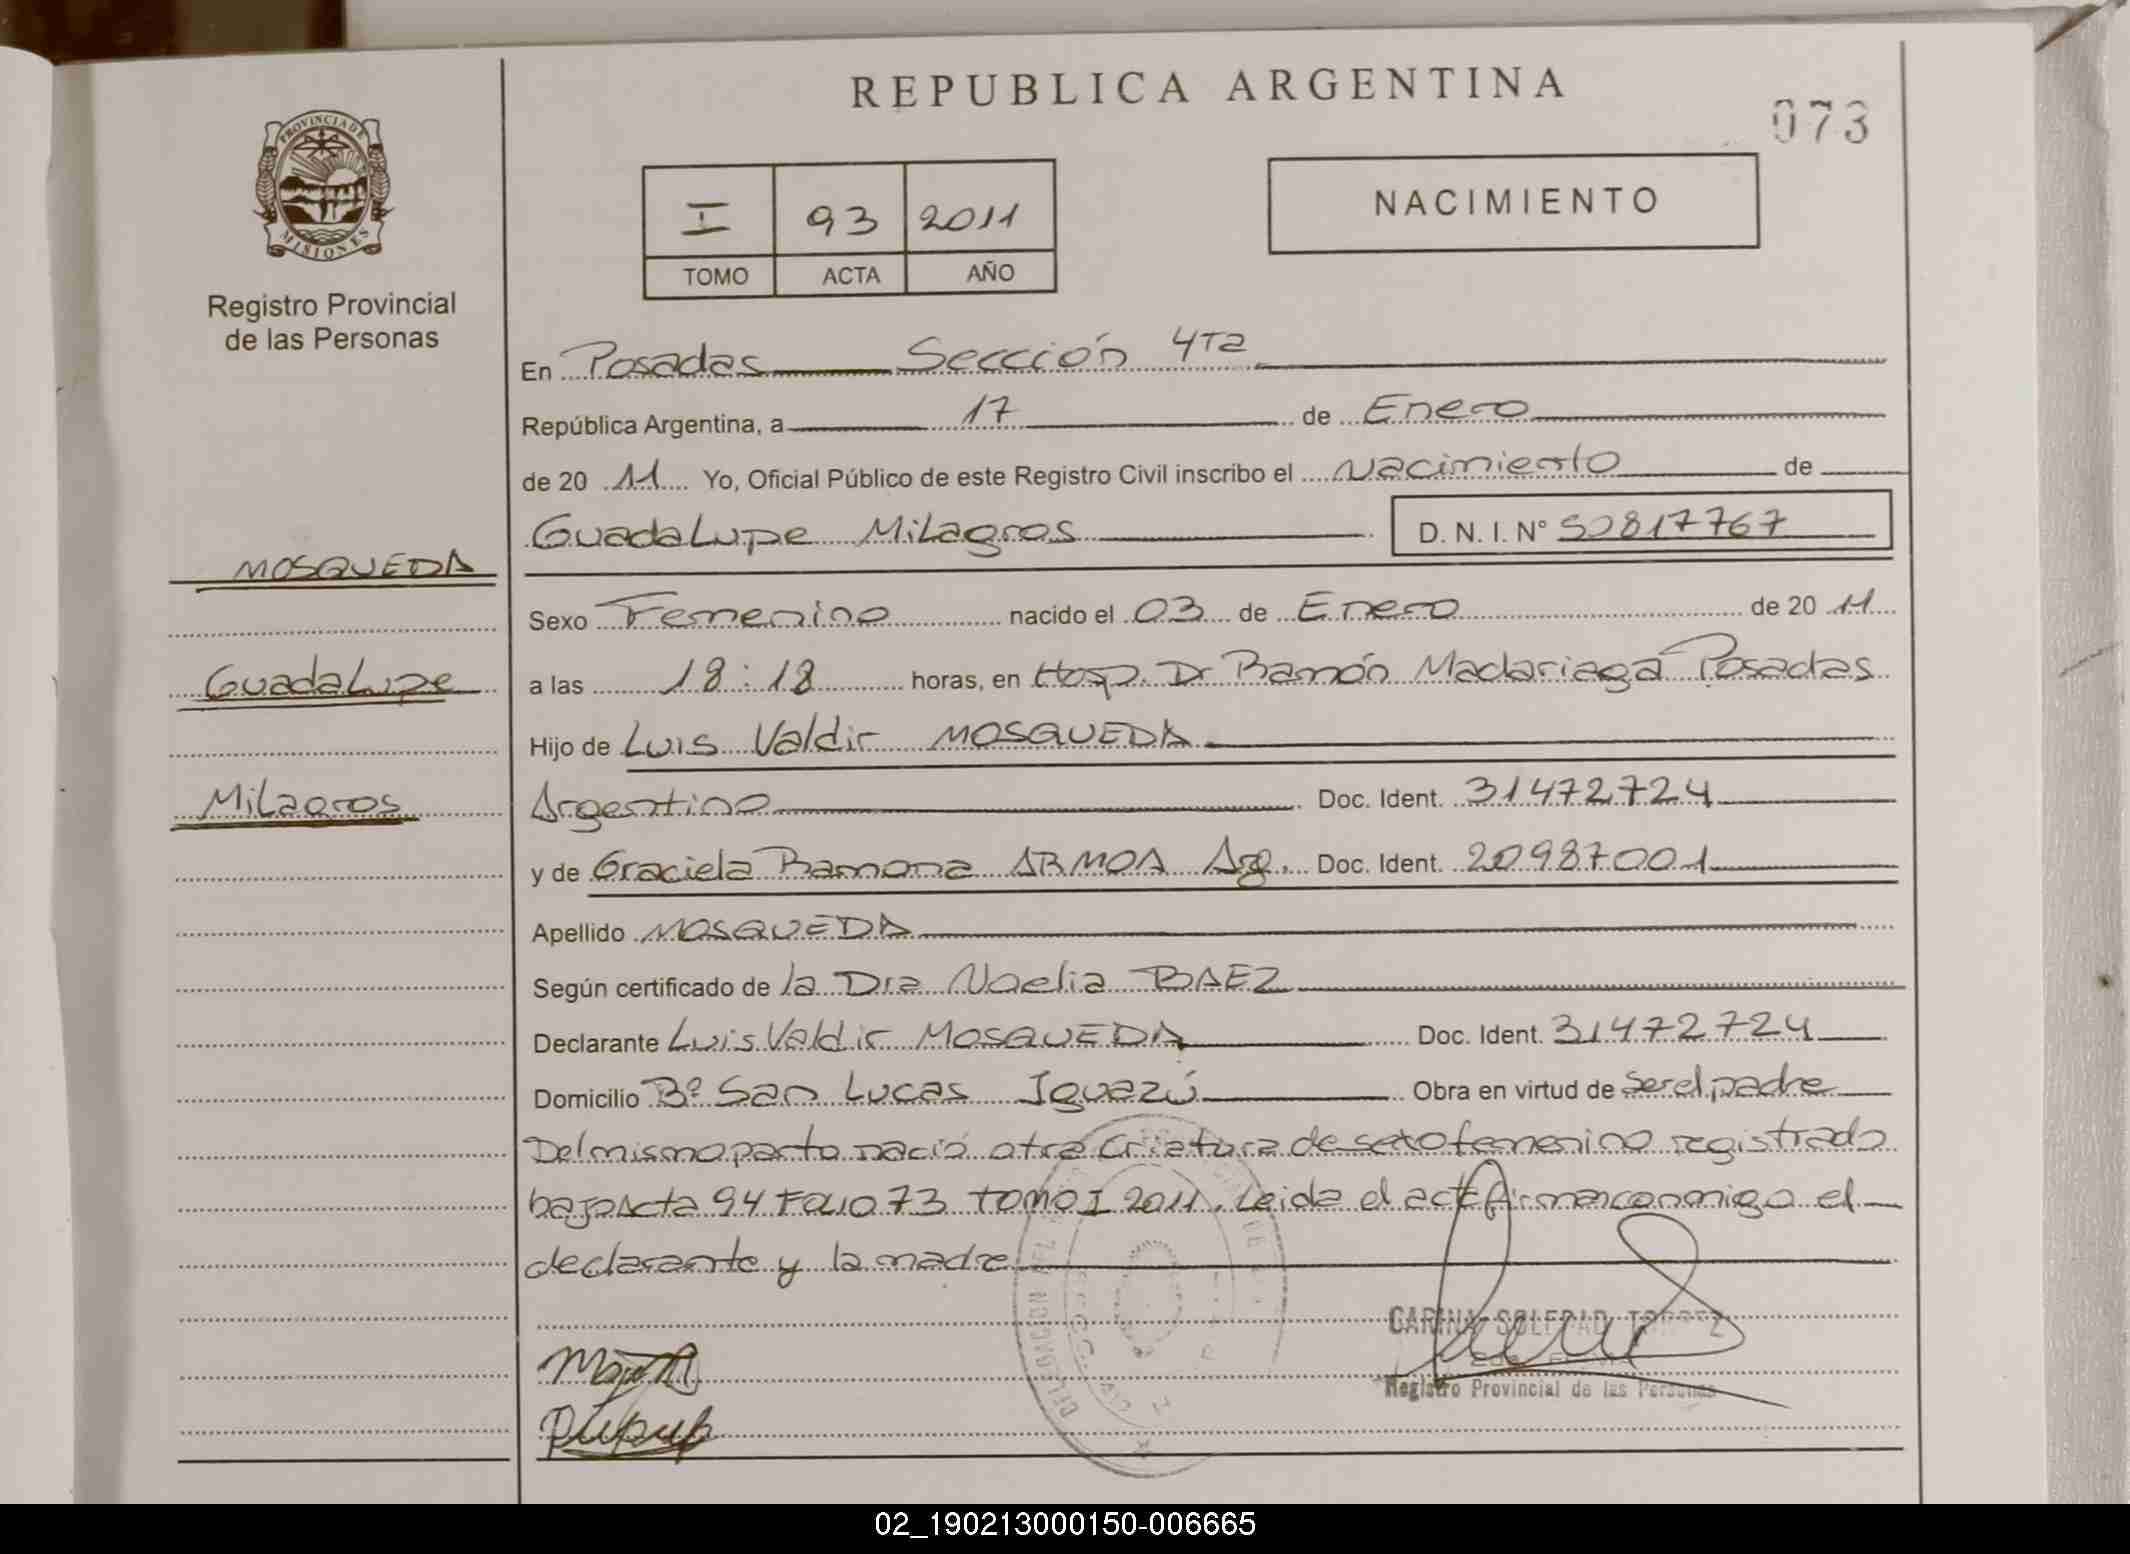 REPUBLICA ARGENTINA
073
PROVINCIA DE
MISIONES
Registro Provincial
de las Personas
I 93 2011
TOMO ACTA AÑO
NACIMIENTO
En Posadas Sección 4ta
República Argentina, a 17 de Enero
de 20 11 Yo, Oficial Público de este Registro Civil inscribo el Nacimiento de
Guadalupe Milagros D. N. I. N° 50817767
MOSQUEDA
Sexo Femenino nacido el 03 de Enero de 20 11
Guadalupe
a las 18:18 horas, en Hosp. Dr Ramón Madariaga Posadas
Hijo de Luis Valdir MOSQUEDA
Milagros
Argentino Doc. Ident. 31472724
y de Graciela Ramona ARMOA Arg. Doc. Ident. 20987001
Apellido MOSQUEDA
Según certificado de la Dra Noelia BAEZ
Declarante Luis Valdir MOSQUEDA Doc. Ident. 31472724
Domicilio B° San Lucas Iguazú Obra en virtud de ser el padre
Del mismo parto nació otra criatura de sexo femenino registrada
bajo Acta 94 Folio 73 Tomo I 2011. Leida el acta firman conmigo el
declarante y la madre
CARINA SOLEDAD TORREZ
Registro Provincial de las Personas
02_190213000150-006665